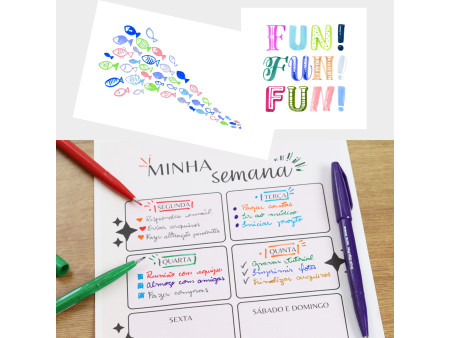 FUN!
FUN!
FUN!
MINHA semana
SEGUNDA
Responder email
Enviar arquivos
Fazer alteração pendentes
TERÇA
Pagar contas
Ir ao médico
Iniciar projeto
QUARTA
Reunião com equipe
Almoço com amigos
Fazer compras
QUINTA
Gravar tutorial
Imprimir fotos
Finalizar arquivos
SEXTA
SÁBADO E DOMINGO